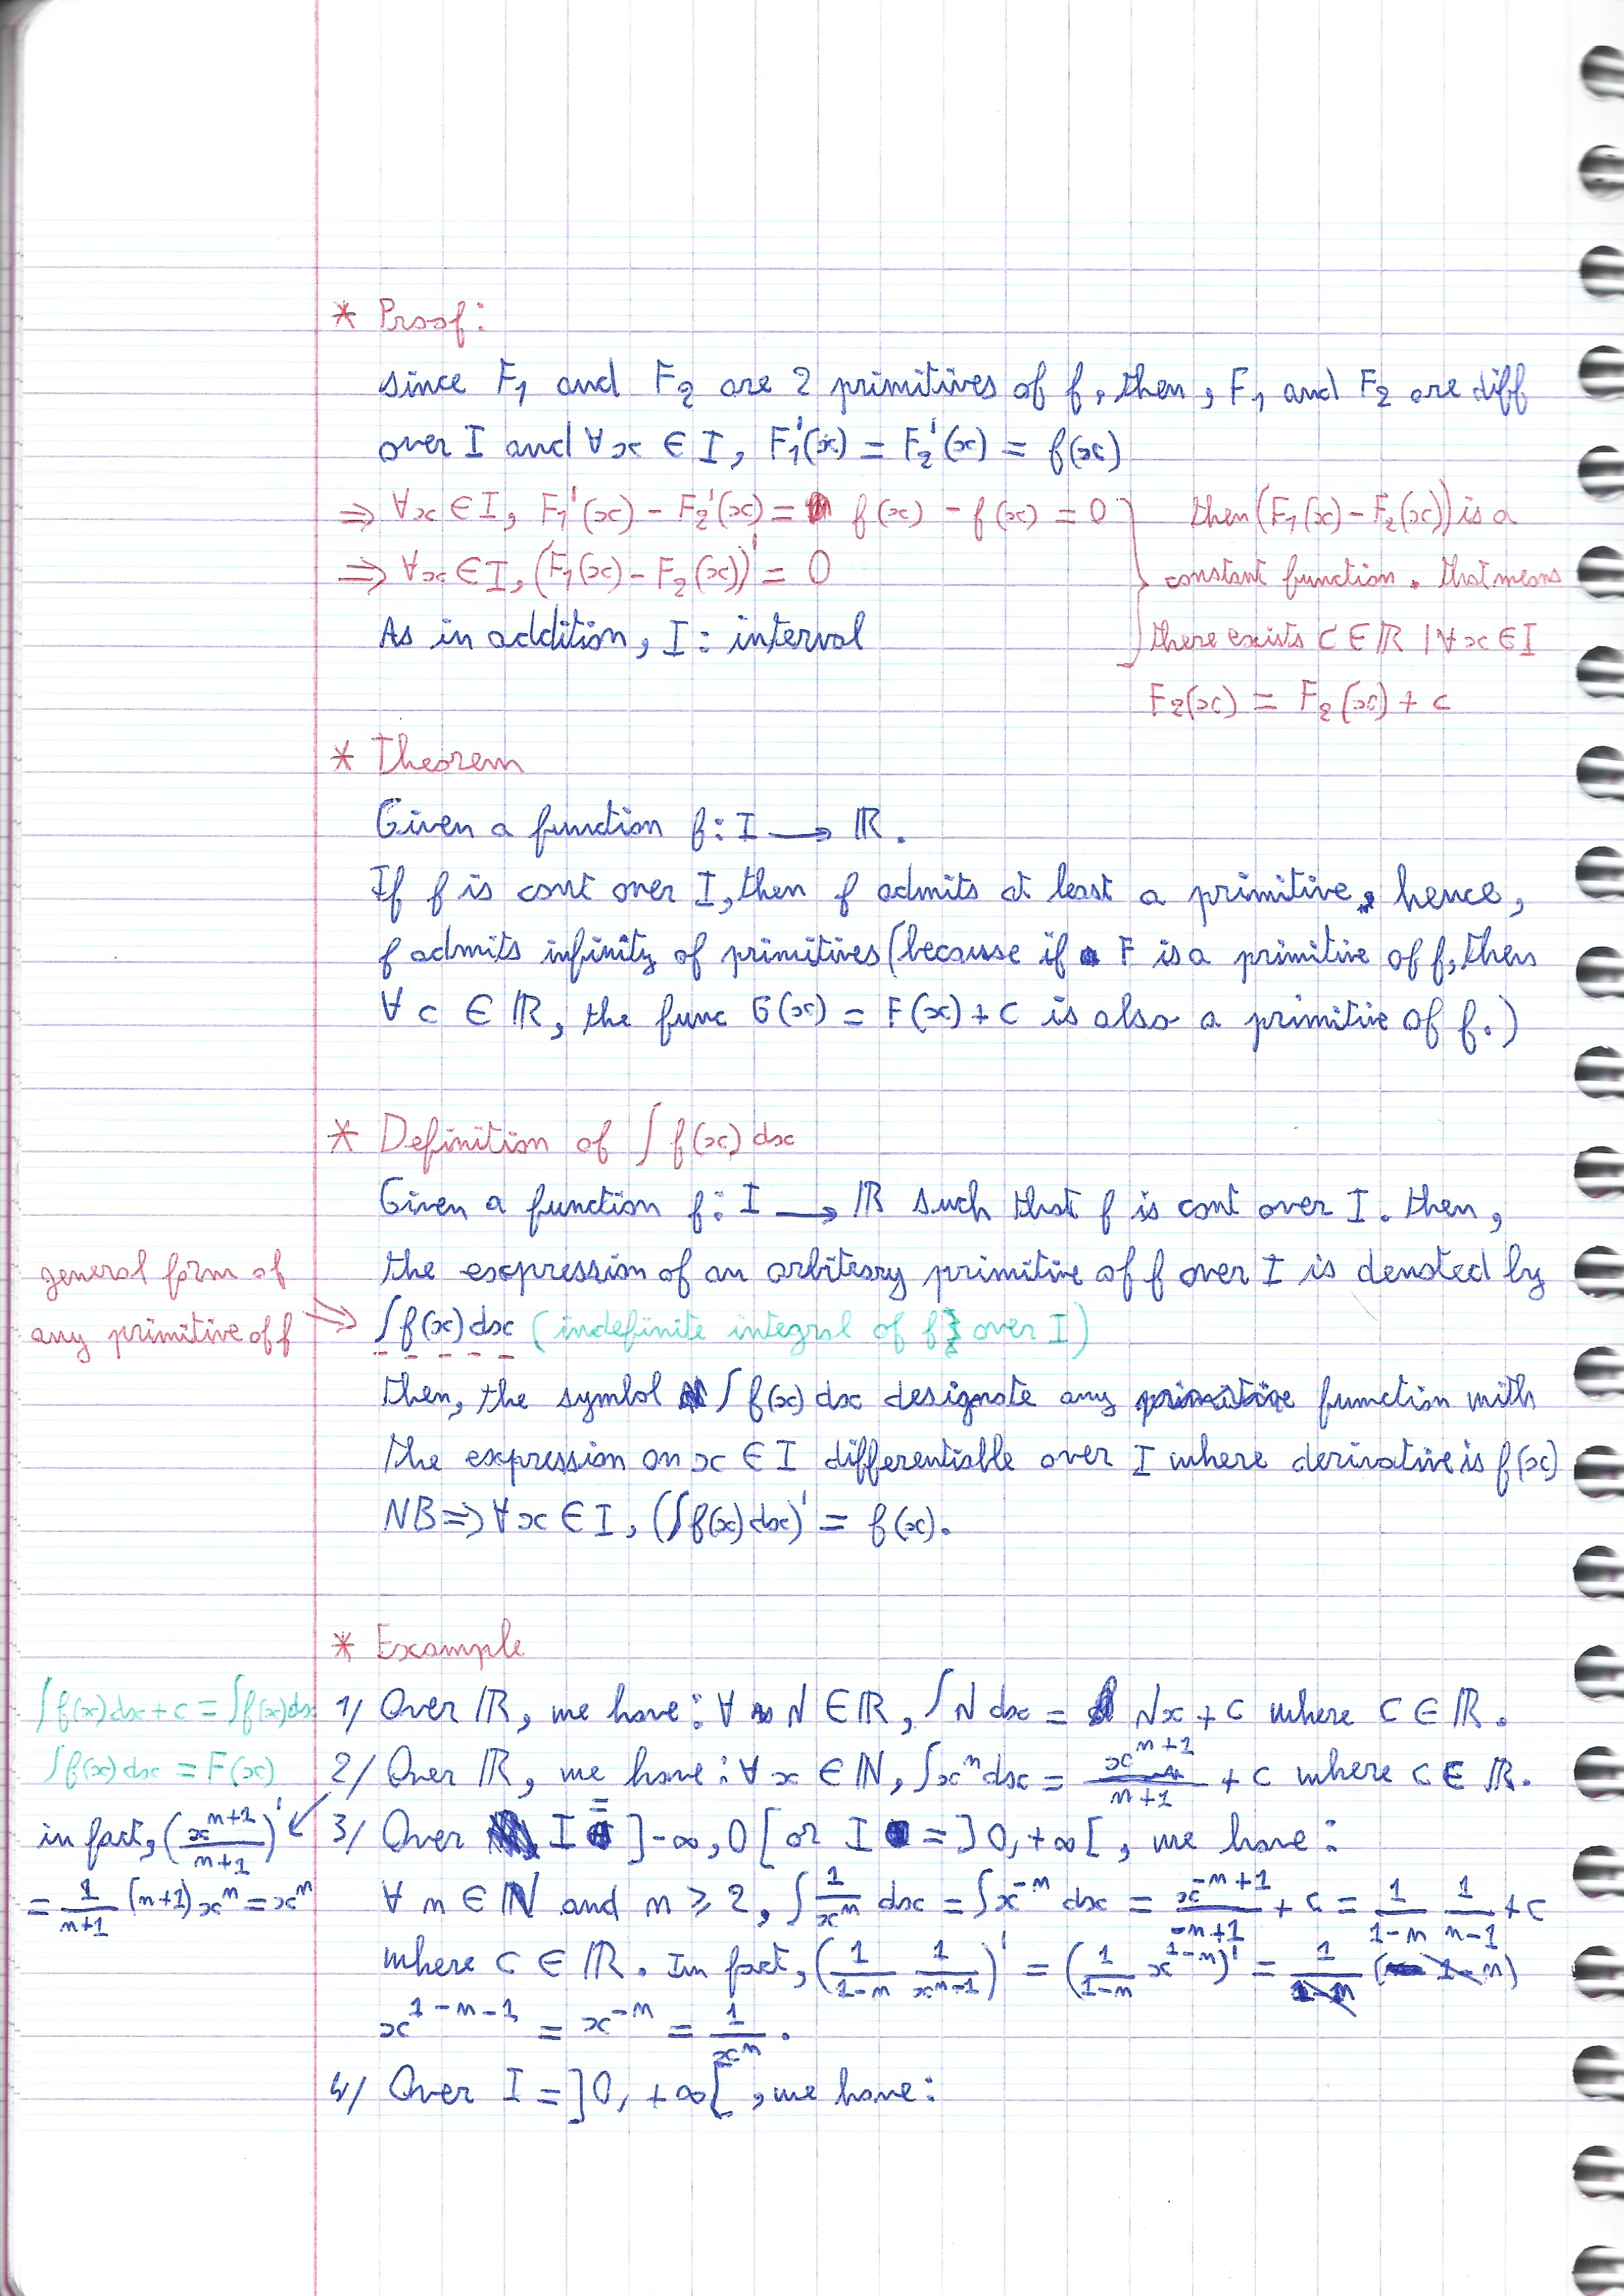 * Proof:
since F₁ and F₂ are 2 primitives of f, then, F₁ and F₂ are diff
over I and ∀x ∈ I, F₁'(x) = F₂'(x) = f(x)
⇒ ∀x ∈ I, F₁'(x) - F₂'(x) = f(x) - f(x) = 0
⇒ ∀x ∈ I, (F₁(x) - F₂(x))' = 0
As in addition, I : interval
then (F₁(x) - F₂(x)) is a
constant function. that means
there exists C ∈ ℝ | ∀x ∈ I
F₂(x) = F₂(x) + c
* Theorem
Given a function f: I ⟶ ℝ.
If f is cont over I, then f admits at least a primitive, hence,
f admits infinity of primitives (because if F is a primitive of f, then
∀ c ∈ ℝ, the func G(x) = F(x) + C is also a primitive of f.)
* Definition of ∫ f(x) dx
Given a function f: I ⟶ ℝ such that f is cont over I. then,
the expression of an arbitrary primitive of f over I is denoted by
general form of
any primitive of f ⇒
∫f(x) dx (indefinite integral of f over I)
then, the symbol ∫ f(x) dx designate any primitive function with
the expression on x ∈ I differentiable over I where derivative is f(x)
NB ⇒ ∀x ∈ I, (∫f(x) dx)' = f(x).
* Example
∫f(x) dx + c = ∫f(x) dx
∫f(x) dx = F(x)
1/ Over ℝ, we have : ∀ N ∈ ℝ, ∫ N dx = Nx + C where C ∈ ℝ.
2/ Over ℝ, we have : ∀ x ∈ ℕ, ∫xⁿ dx = xⁿ⁺¹/n+1 + C where C ∈ ℝ.
in fact, (xⁿ⁺¹/n+1)'
= 1/n+1 (n+1) xⁿ = xⁿ
3/ Over I = ]-∞, 0[ or I = ]0, +∞[, we have :
∀ n ∈ ℕ and n ⩾ 2, ∫ 1/xⁿ dx = ∫x⁻ⁿ dx = x⁻ⁿ⁺¹/-n+1 + C = 1/1-n 1/n-1 + C
where C ∈ ℝ. In fact, (1/1-n 1/xⁿ⁻¹)' = (1/1-n x¹⁻ⁿ)' = 1/1-n (1-n)
x¹⁻ⁿ⁻¹ = x⁻ⁿ = 1/xⁿ.
4/ Over I = ]0, +∞[, we have :